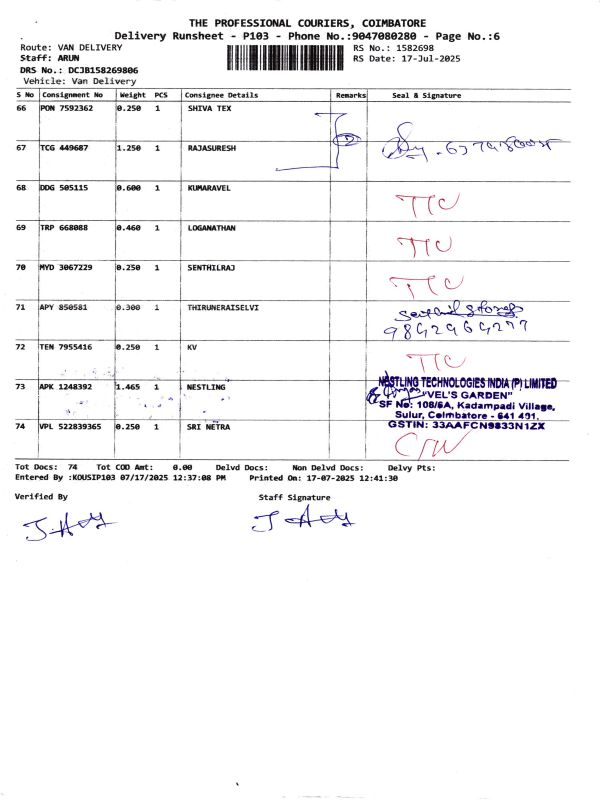 THE PROFESSIONAL COURIERS, COIMBATORE
Delivery Runsheet - P103 - Phone No.:9047080280 - Page No.:6
Route: VAN DELIVERY RS No.: 1582698
Staff: ARUN RS Date: 17-Jul-2025
DRS No.: DCJB158269806
Vehicle: Van Delivery
S No Consignment No Weight PCS Consignee Details Remarks Seal & Signature
66 PON 7592362 0.250 1 SHIVA TEX
67 TCG 449687 1.250 1 RAJASURESH
68 DDG 505115 0.600 1 KUMARAVEL TTC
69 TRP 668088 0.460 1 LOGANATHAN TTC
70 MYD 3067229 0.250 1 SENTHILRAJ TTC
71 APY 850581 0.300 1 THIRUNERAISELVI
72 TEN 7955416 0.250 1 KV TTC
73 APK 1248392 1.465 1 NESTLING
NESTLING TECHNOLOGIES INDIA (P) LIMITED
"VEL'S GARDEN"
SF No: 108/6A, Kadampadi Village,
Sulur, Coimbatore - 641 401.
GSTIN: 33AAFCN9833N1ZX
74 VPL 522839365 0.250 1 SRI NETRA
Tot Docs: 74 Tot COD Amt: 0.00 Delvd Docs: Non Delvd Docs: Delvy Pts:
Entered By :KOUSIP103 07/17/2025 12:37:08 PM Printed On: 17-07-2025 12:41:30
Verified By Staff Signature